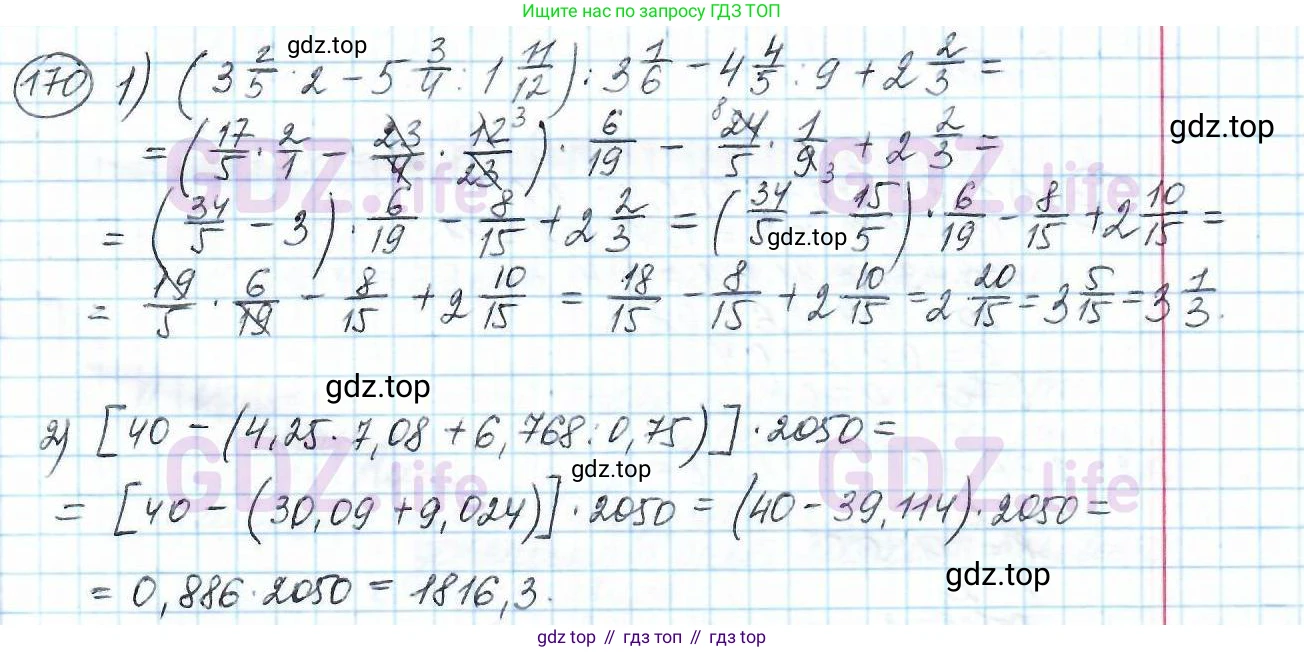 Ищите нас по запросу ГДЗ ТОП
gdz.top
170 1) (3 2/5 · 2 − 5 3/4 : 1 11/12) : 3 1/6 − 4 4/5 : 9 + 2 2/3 =
gdz.top
= (17/5 · 2/1 − 23/4 · 12/23 3) · 6/19 − 8 24/5 · 1/9 3 + 2 2/3 =
GDZ.life GDZ.life
= (34/5 − 3) · 6/19 − 8/15 + 2 2/3 = (34/5 − 15/5) · 6/19 − 8/15 + 2 10/15 =
gdz.top
= 19/5 · 6/19 − 8/15 + 2 10/15 = 18/15 − 8/15 + 2 10/15 = 2 20/15 = 3 5/15 = 3 1/3.
gdz.top
2) [40 − (4,25 · 7,08 + 6,768 : 0,75)] · 2050 =
gdz.top
GDZ.life GDZ.life
= [40 − (30,09 + 9,024)] · 2050 = (40 − 39,114) · 2050 =
gdz.top
= 0,886 · 2050 = 1816,3.
gdz top // гдз топ // gdz top